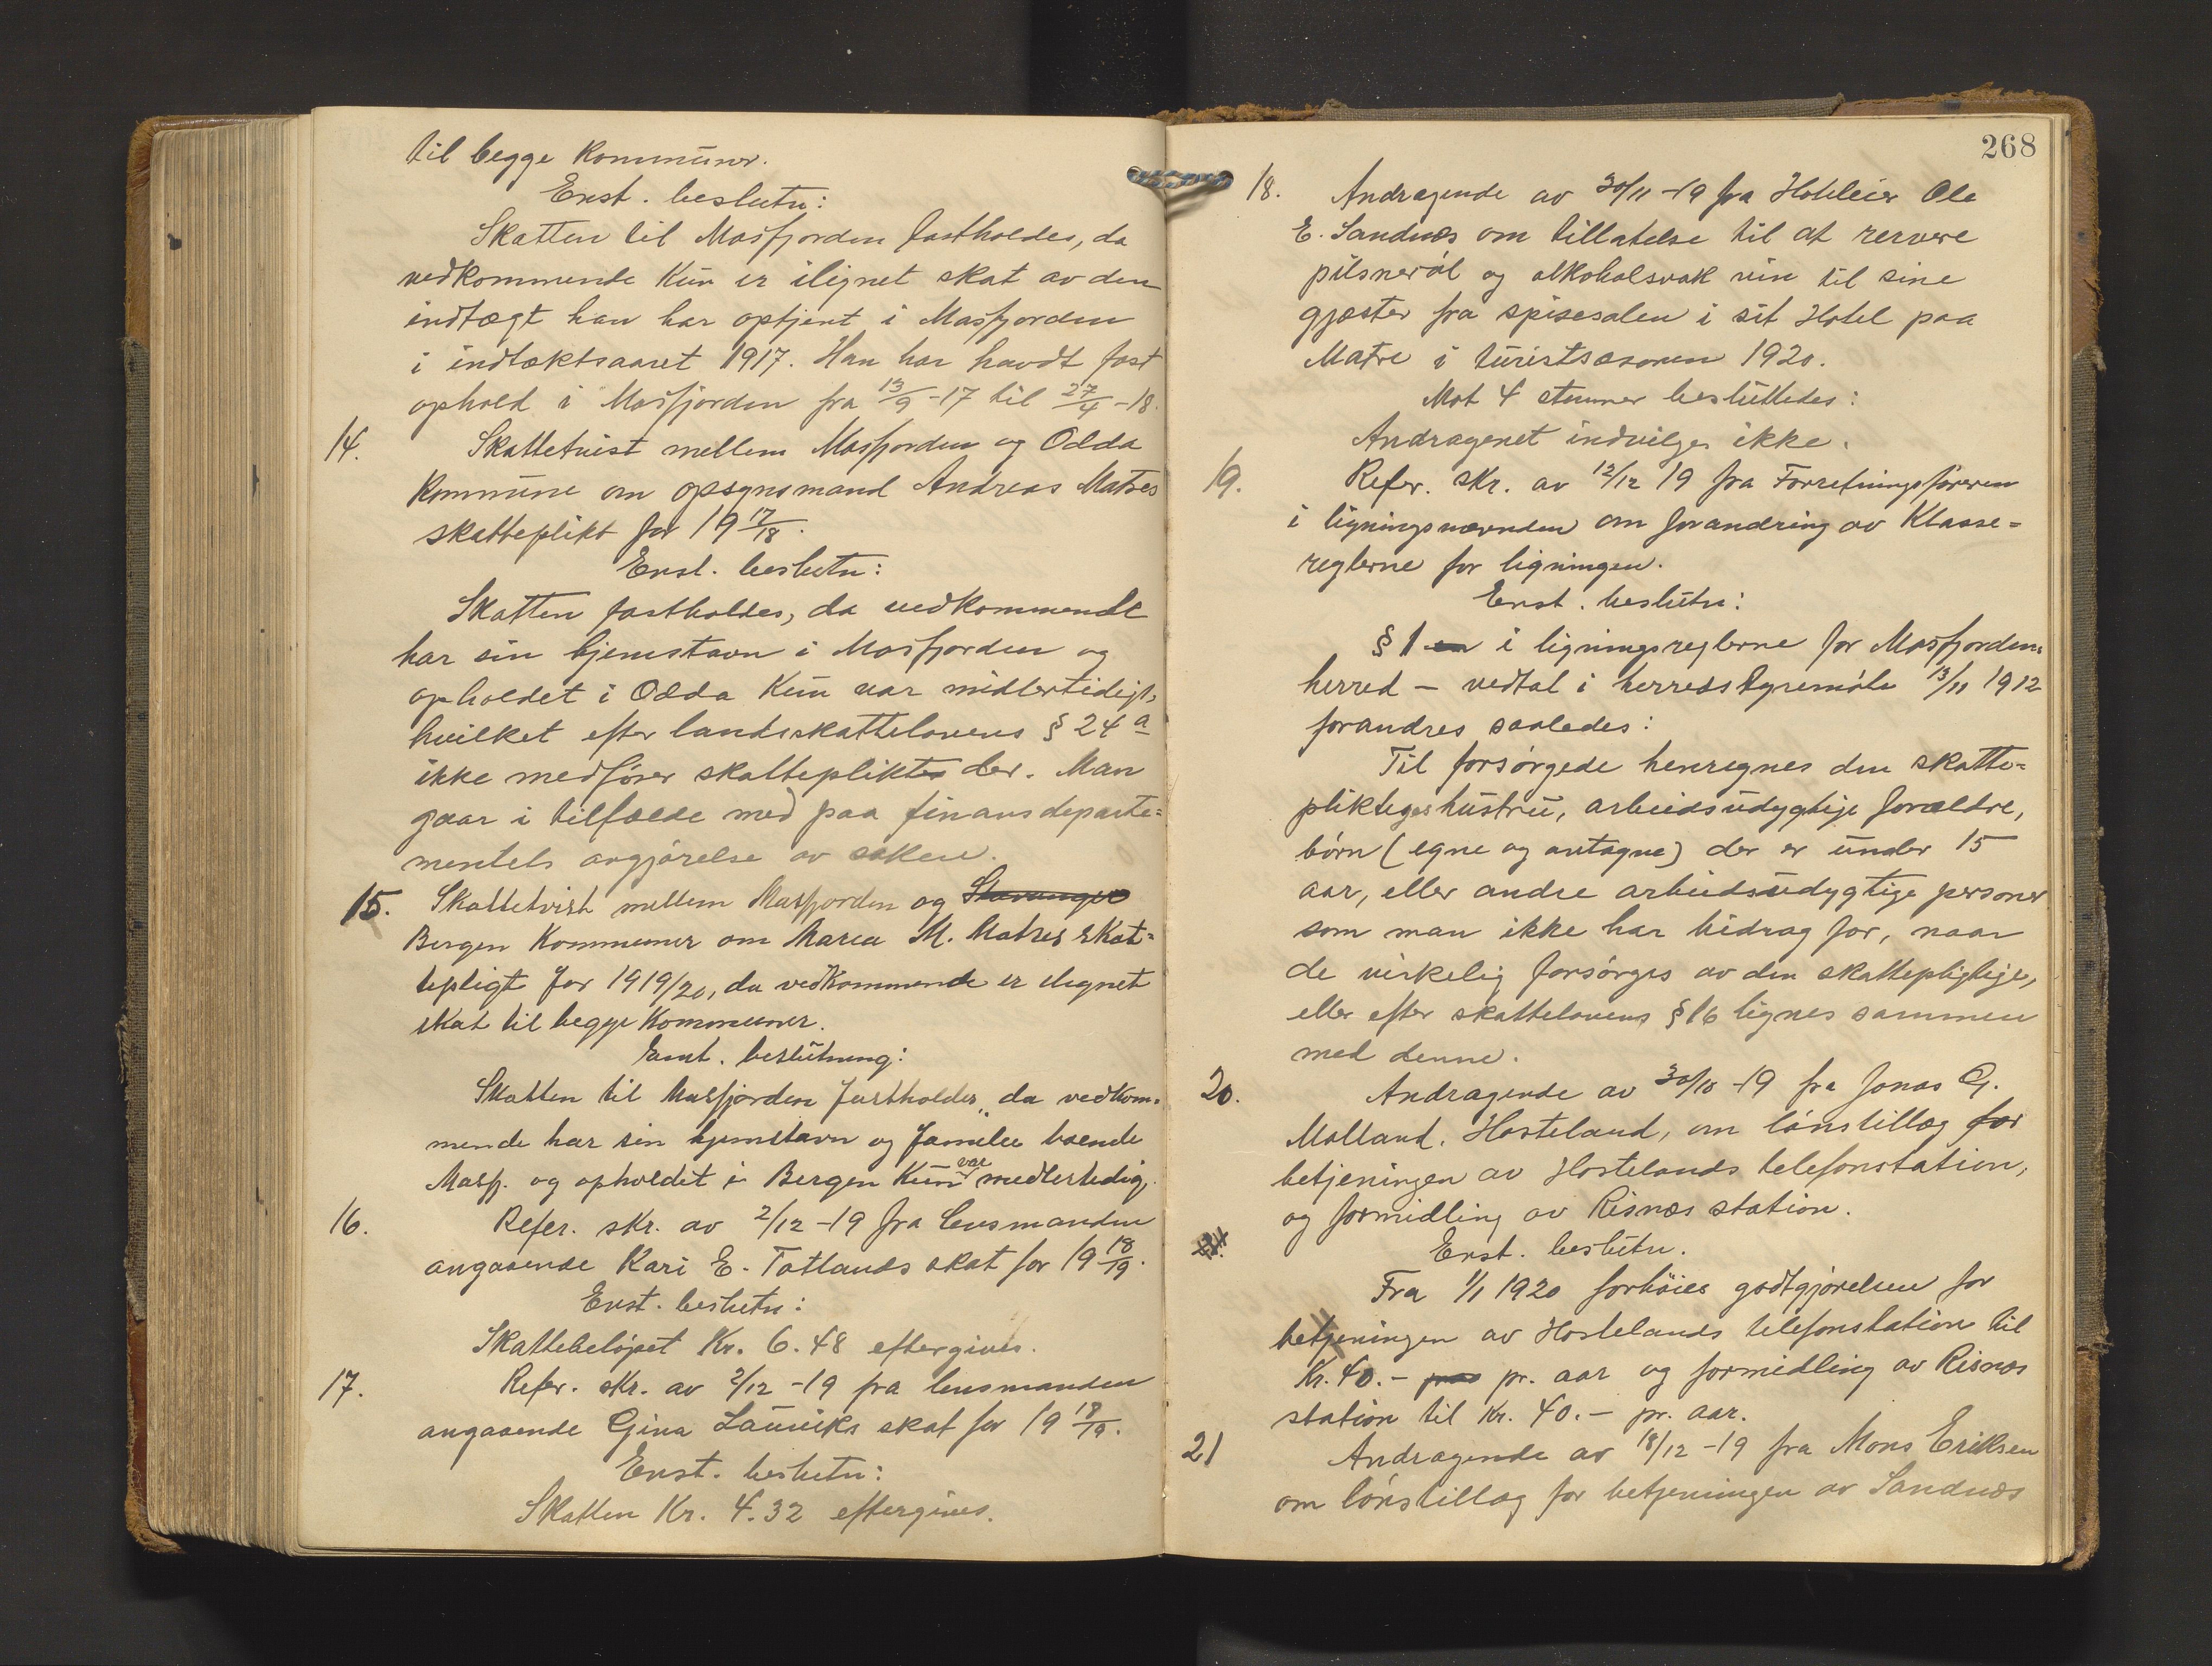 til begge kommuner.
Enst. beslutn:
Skatten til Masfjorden fastholdes, da
vedkommende kun er ilignet skat av den
indtægt han har optjent i Masfjorden
i indtæktsaaret 1917. Han har havdt fast
ophold i Masfjorden fra 13/9-17 til 27/4-18.
14. Skattetvist mellem Masfjorden og Odda
kommune om opsynsmand Andreas Matres
skatteplikt for 19 17/18.
Enst. beslutn:
Skatten fastholdes, da vedkommende
har sin hjemstavn i Masfjorden og
opholdet i Odda kun var midlertidigt,
hvilket efter landsskattelovens § 24 a
ikke medfører skatteplikt der. Man
gaar i tilfælde med paa finansdeparte=
mentets avgjørelse av saken.
15. Skattetvist mellem Masfjorden og Stavanger
Bergen kommuner om Marea M. Matres skat=
tepligt for 1919/20, da vedkommende er ilignet
skat til begge kommuner.
Enst. beslutning:
Skatten til Masfjorden fastholdes, da vedkom=
mende har sin hjemstavn og familie boende
Masfj. og opholdet i Bergen kun var midlertidig.
16. Refer. skr. av 2/12-19 fra lensmanden
angaaende Kari E. Totlands skat for 19 18/19.
Enst. beslutn:
Skattebeløpet Kr. 6.48 eftergives.
17. Refer. skr. av 2/12-19 fra lensmanden
angaaende Gina Lauviks skat for 19 18/19.
Enst. beslutn:
Skatten Kr. 4.32 eftergives.
268
18. Andragende av 30/11-19 fra Hoteleier Ole
E. Sandnes om tillatelse til at servere
pilsnerøl og alkoholsvak vin til sine
gjæster fra spisesalen i sit Hotel paa
Matre i turistsæsonen 1920.
Mot 4 stemmer besluttedes:
Andragenet indvilges ikke.
19. Refer. skr. av 12/12 19 fra Forretningsføreren
i ligningsnævnden om forandring av Klasse=
reglerne for ligningen.
Enst. beslutn:
§ 1 en i ligningsreglerne for Masfjorden
herred – vedtat i herredstyremøte 13/11 1912
forandres saaledes:
Til forsørgede henregnes den skatte=
pliktiges hustru, arbeidsudygtige forældre,
børn (egne og antagne) der er under 15
aar, eller andre arbeidsudygtige personer
som man ikke har bidrag for, naar
de virkelig forsørges av den skattepligtige,
eller efter skattelovens § 16 lignes sammen
med denne.
20. Andragende av 30/10-19 fra Jonas G.
Molland, Hosteland, om lønstillæg for
betjeningen av Hostelands telefonstation,
og formidling av Risnes station.
21. Enst. beslutn.
Fra 1/1 1920 forhøies godtgjørelsen for
betjeningen av Hostelands telefonstation til
Kr. 40.- pr. aar og formidling av Risnes
station til Kr. 40.- pr. aar.
21 Andragende av 18/12-19 fra Mons Eriksen
om lønstillæg for betjeningen av Sandnes